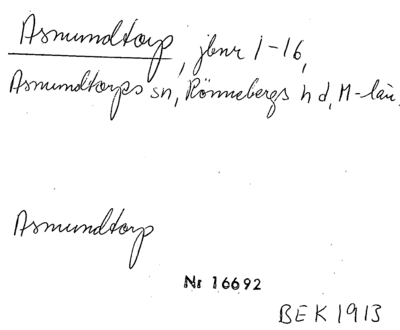 Asmundtorp, jbnr 1-16,
Asmundtorps sn, Rönnebergs hd, M-län.
Asmundtorp
Nr 16692
BEK 1913